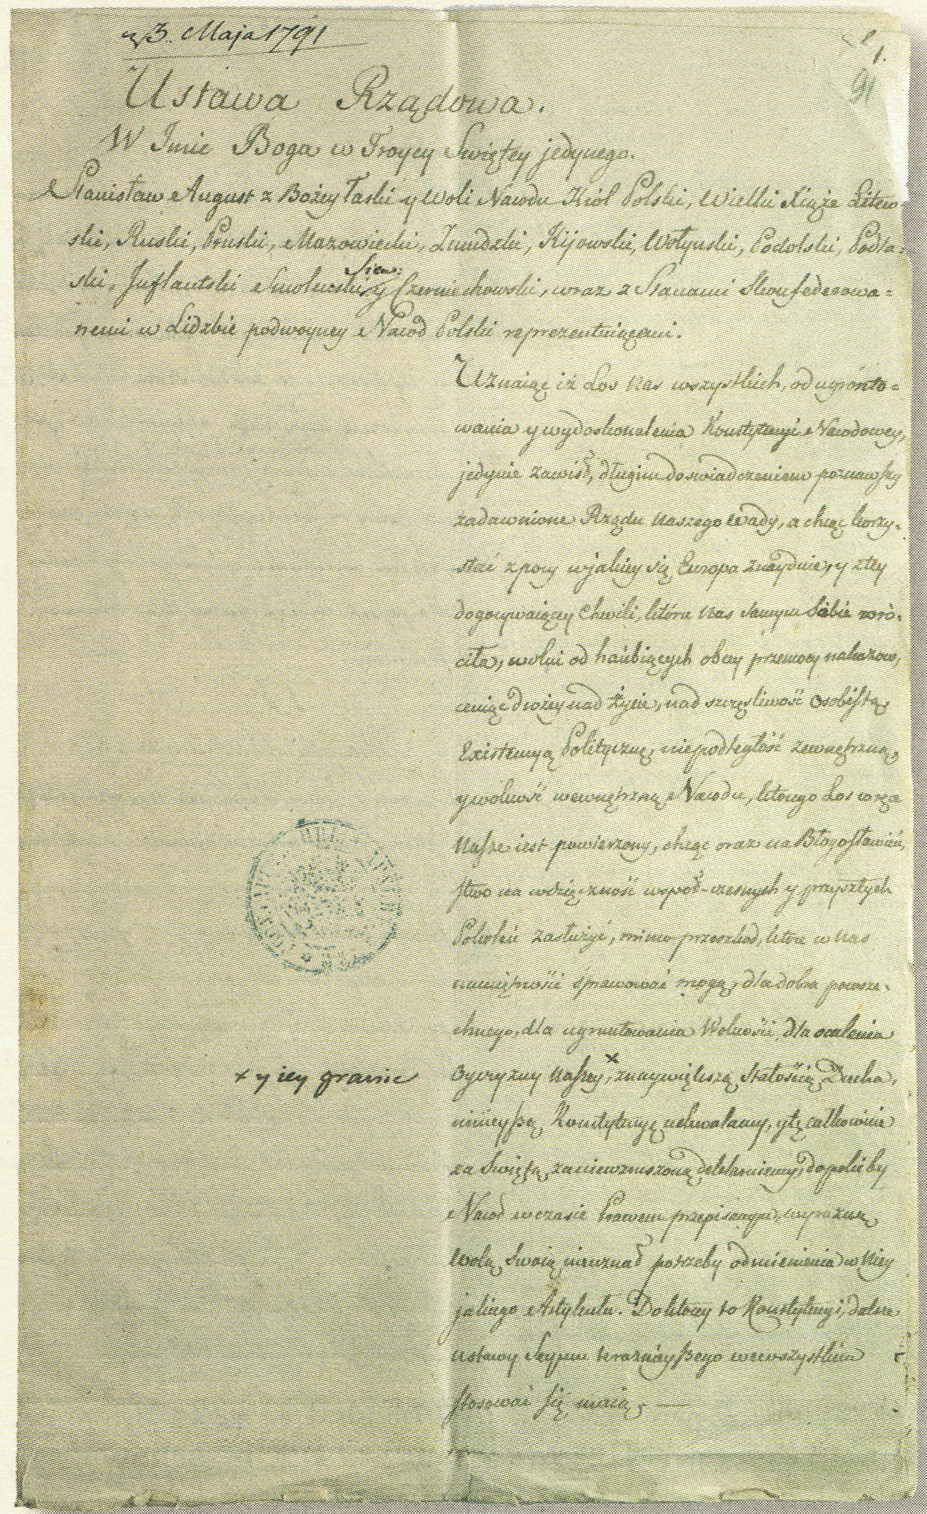 3. Maja 1791
1.
91
Ustawa Rządowa.
W Imie Boga w Troycy Swiętey jedynego.
Stanisław August z Bożey Łaski y Woli Narodu Król Polski, Wielki Xiąże Litew-
ski, Ruski, Pruski, Mazowiecki, Żmudzki, Kijowski, Wołynski, Podolski, Podla-
ski, Inflantski Smolenski, Siew: y Czerniechowski, wraz z Stanami Skonfederowa-
nemi w Lidzbie podwoyney Naród Polski reprezentuiącemi.
Uznaiąc iż Los nas wszystkich, od ugrónto-
wania y wydoskonalenia Konstytucyi Narodowey,
jedynie zawisł, długim doswiadczeniem poznawszy
zadawnione Rządu naszego wady, a chcąc korzy-
stać z pory w jakiey się Europa znayduie, y z tey
dogorywaiącey Chwili, która nas samym Sobie wró-
ciła, wolni od hańbiących obcey przemocy nakazow,
ceniąc drożey nad życie, nad szczęsliwość osobistą,
Existencyą Polityczną, niepodległość zewnętrzną,
y wolność wewnętrzną Narodu, ktorego Los w ręce
nasze iest powierzony, chcąc oraz na Błogosławień,
stwo na wdzięczność wspoł-czesnych y przyszłych
Pokoleń zasłużyć, mimo przeszkod, ktore w nas
namiętności sprawować mogą, dla dobra powsze-
chnego, dla ugruntowania Wolności, dla ocalenia
Oyczyzny naszey, x z naywiększą stałością Ducha,
x y iey granic
ninieyszą Konstytucyę uchwalamy, y tę całkowicie
za Swiętą, za niewzruszoną deklaruiemy, dopóki by
Naród w czasie Prawem przepisanym, wyrazną
wolą Swoią nieuznał potrzeby odmienienia w niey
jakiego Artykułu. Do ktorey to Konstytucyi, dalsze
ustawy Seymu teraznieyszego we wszystkim
stosować się maią.